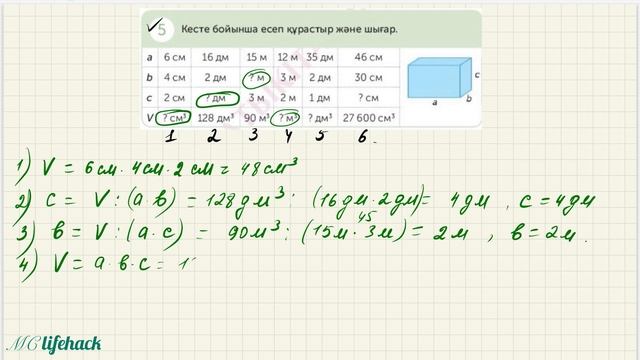 5 Кесте бойынша есеп құрастыр және шығар.
a 6 см 16 дм 15 м 12 м 35 дм 46 см
b 4 см 2 дм ? м 3 м 2 дм 30 см
c 2 см ? дм 3 м 2 м 1 дм ? см
V ? см³ 128 дм³ 90 м³ ? м³ ? дм³ 27 600 см³
c
b
a
1 2 3 4 5 6.
1) V = 6см · 4см · 2см = 48см³
2) c = V : (a в) = 128дм³ : (16дм · 2дм) = 4дм, c = 4дм
45
3) в = V : (a · c) = 90м³ : (15м · 3м) = 2м, в = 2м.
4) V = a · в · c = 1
MC lifehack